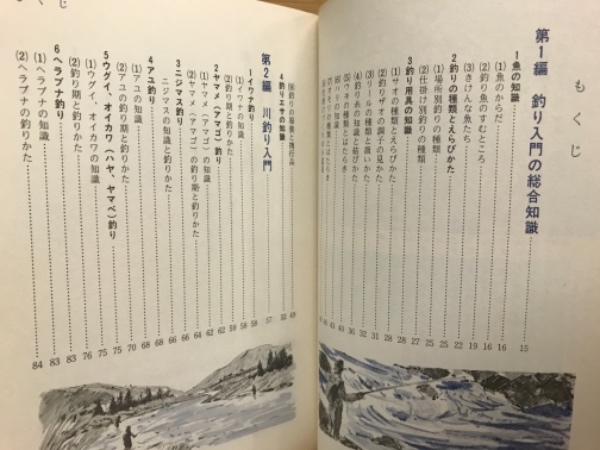 もくじ
第1編 釣り入門の総合知識
1 魚の知識……15
(1)魚のからだ……16
(2)釣り魚のすむところ……16
(3)きけんな魚たち……19
2 釣りの種類とえらびかた……22
(1)場所別釣りの種類……22
(2)仕掛け別釣りの種類……25
3 釣り用具の知識……27
(1)サオの種類とえらびかた……27
(2)釣りザオの調子の見かた……28
(3)リールの種類と扱いかた……28
(4)釣り糸の知識と結びかた……31
(5)ウキの種類とはたらき……36
(6)ハリの知識……
(7)オモリの種類とはたらき……
釣りの服装と携行品……49
4 釣りエサの知識……52
第2編 川釣り入門……57
1 イワナ釣り……58
(1)イワナの知識……58
(2)釣り期と釣りかた……59
2 ヤマメ(アマゴ)釣り……62
(1)ヤマメ(アマゴ)の知識……62
(2)ヤマメ(アマゴ)の釣り期と釣りかた……64
3 ニジマス釣り……66
ニジマスの知識と釣りかた……66
4 アユ釣り……68
(1)アユの知識……68
(2)アユの釣り期と釣りかた……70
5 ウグイ、オイカワ(ハヤ、ヤマベ)釣り……75
(1)ウグイ、オイカワの知識……75
(2)釣り期と釣りかた……76
6 ヘラブナ釣り……83
(1)ヘラブナの知識……83
(2)ヘラブナの釣りかた……84
もくじ